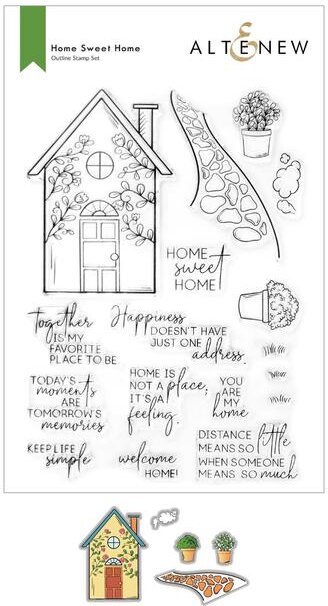 Home Sweet Home
Outline Stamp Set
ALTENEW
HOME
sweet
HOME
together
IS MY
FAVORITE
PLACE TO BE
Happiness
DOESN'T HAVE
JUST ONE
address.
TODAY'S
moments
ARE
TOMORROW'S
memories
HOME IS
NOT A place,
IT'S A
feeling.
YOU
ARE
MY
home
KEEP LIFE
simple
welcome
HOME!
DISTANCE
MEANS SO little
WHEN SOMEONE
MEANS SO much